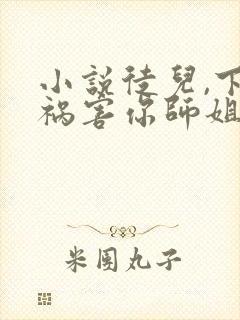 小説徒兒,下
祸害你師姐
米團丸子